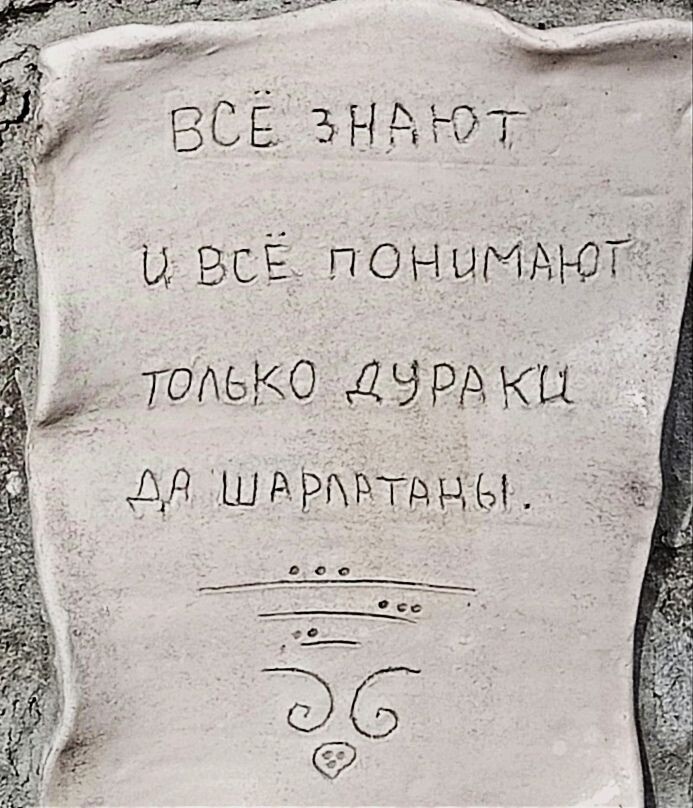 ВСЁ ЗНАЮТ
И ВСЁ ПОНИМАЮТ
ТОЛЬКО ДУРАКИ
ДА ШАРЛАТАНЫ.